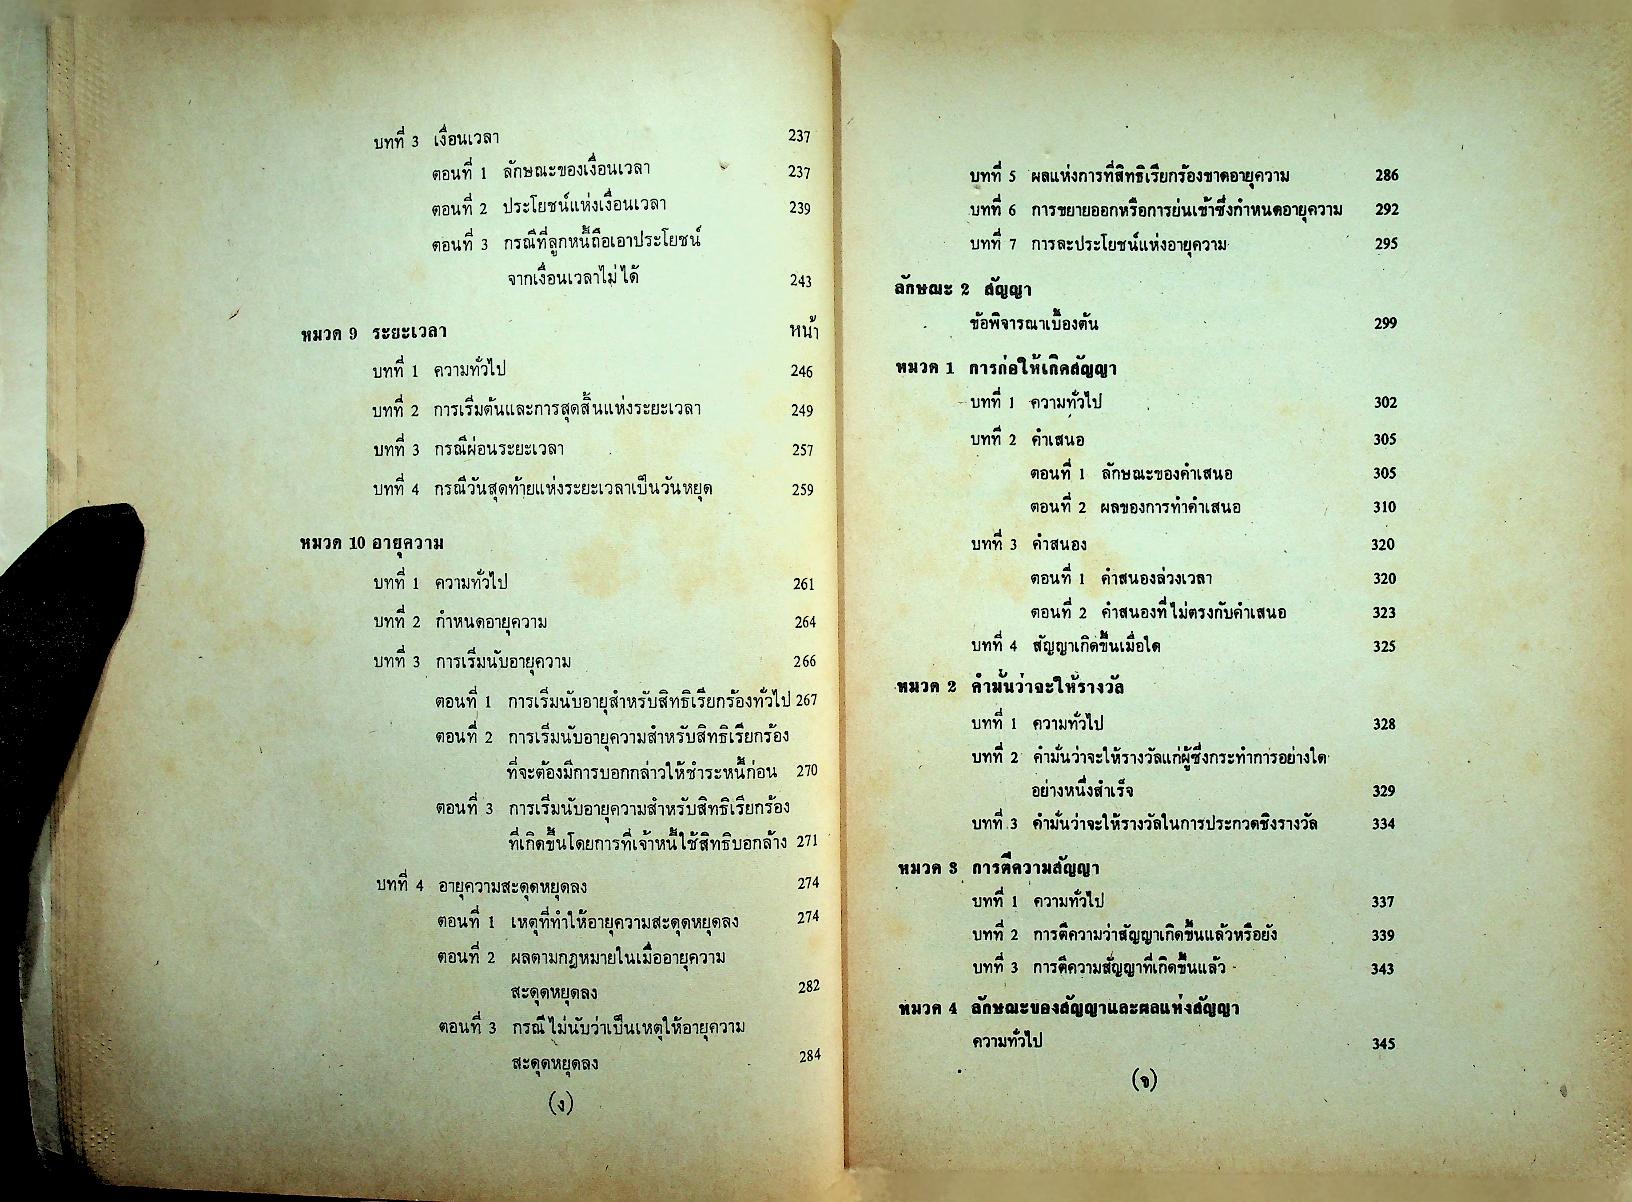 บทที่ 3 เงื่อนเวลา 237
ตอนที่ 1 ลักษณะของเงื่อนเวลา 237
ตอนที่ 2 ประโยชน์แห่งเงื่อนเวลา 239
ตอนที่ 3 กรณีที่ลูกหนี้ถือเอาประโยชน์
จากเงื่อนเวลาไม่ได้ 243
หมวด 9 ระยะเวลา หน้า
บทที่ 1 ความทั่วไป 246
บทที่ 2 การเริ่มต้นและการสุดสิ้นแห่งระยะเวลา 249
บทที่ 3 กรณีผ่อนระยะเวลา 257
บทที่ 4 กรณีวันสุดท้ายแห่งระยะเวลาเป็นวันหยุด 259
หมวด 10 อายุความ
บทที่ 1 ความทั่วไป 261
บทที่ 2 กำหนดอายุความ 264
บทที่ 3 การเริ่มนับอายุความ 266
ตอนที่ 1 การเริ่มนับอายุสำหรับสิทธิเรียกร้องทั่วไป 267
ตอนที่ 2 การเริ่มนับอายุความสำหรับสิทธิเรียกร้อง
ที่จะต้องมีการบอกกล่าวให้ชำระหนี้ก่อน 270
ตอนที่ 3 การเริ่มนับอายุความสำหรับสิทธิเรียกร้อง
ที่เกิดขึ้นโดยการที่เจ้าหนี้ใช้สิทธิบอกล้าง 271
บทที่ 4 อายุความสะดุดหยุดลง 274
ตอนที่ 1 เหตุที่ทำให้อายุความสะดุดหยุดลง 274
ตอนที่ 2 ผลตามกฎหมายในเมื่ออายุความ
สะดุดหยุดลง 282
ตอนที่ 3 กรณีไม่นับว่าเป็นเหตุให้อายุความ
สะดุดหยุดลง 284
(ง)
บทที่ 5 ผลแห่งการที่สิทธิเรียกร้องขาดอายุความ 286
บทที่ 6 การขยายออกหรือการย่นเข้าซึ่งกำหนดอายุความ 292
บทที่ 7 การละประโยชน์แห่งอายุความ 295
ลักษณะ 2 สัญญา
ข้อพิจารณาเบื้องต้น 299
หมวด 1 การก่อให้เกิดสัญญา
บทที่ 1 ความทั่วไป 302
บทที่ 2 คำเสนอ 305
ตอนที่ 1 ลักษณะของคำเสนอ 305
ตอนที่ 2 ผลของการทำคำเสนอ 310
บทที่ 3 คำสนอง 320
ตอนที่ 1 คำสนองล่วงเวลา 320
ตอนที่ 2 คำสนองที่ไม่ตรงกับคำเสนอ 323
บทที่ 4 สัญญาเกิดขึ้นเมื่อใด 325
หมวด 2 คำมั่นว่าจะให้รางวัล
บทที่ 1 ความทั่วไป 328
บทที่ 2 คำมั่นว่าจะให้รางวัลแก่ผู้ซึ่งกระทำการอย่างใด
อย่างหนึ่งสำเร็จ 329
บทที่ 3 คำมั่นว่าจะให้รางวัลในการประกวดชิงรางวัล 334
หมวด 3 การตีความสัญญา
บทที่ 1 ความทั่วไป 337
บทที่ 2 การตีความว่าสัญญาเกิดขึ้นแล้วหรือยัง 339
บทที่ 3 การตีความสัญญาที่เกิดขึ้นแล้ว 343
หมวด 4 ลักษณะของสัญญาและผลแห่งสัญญา
ความทั่วไป 345
(จ)